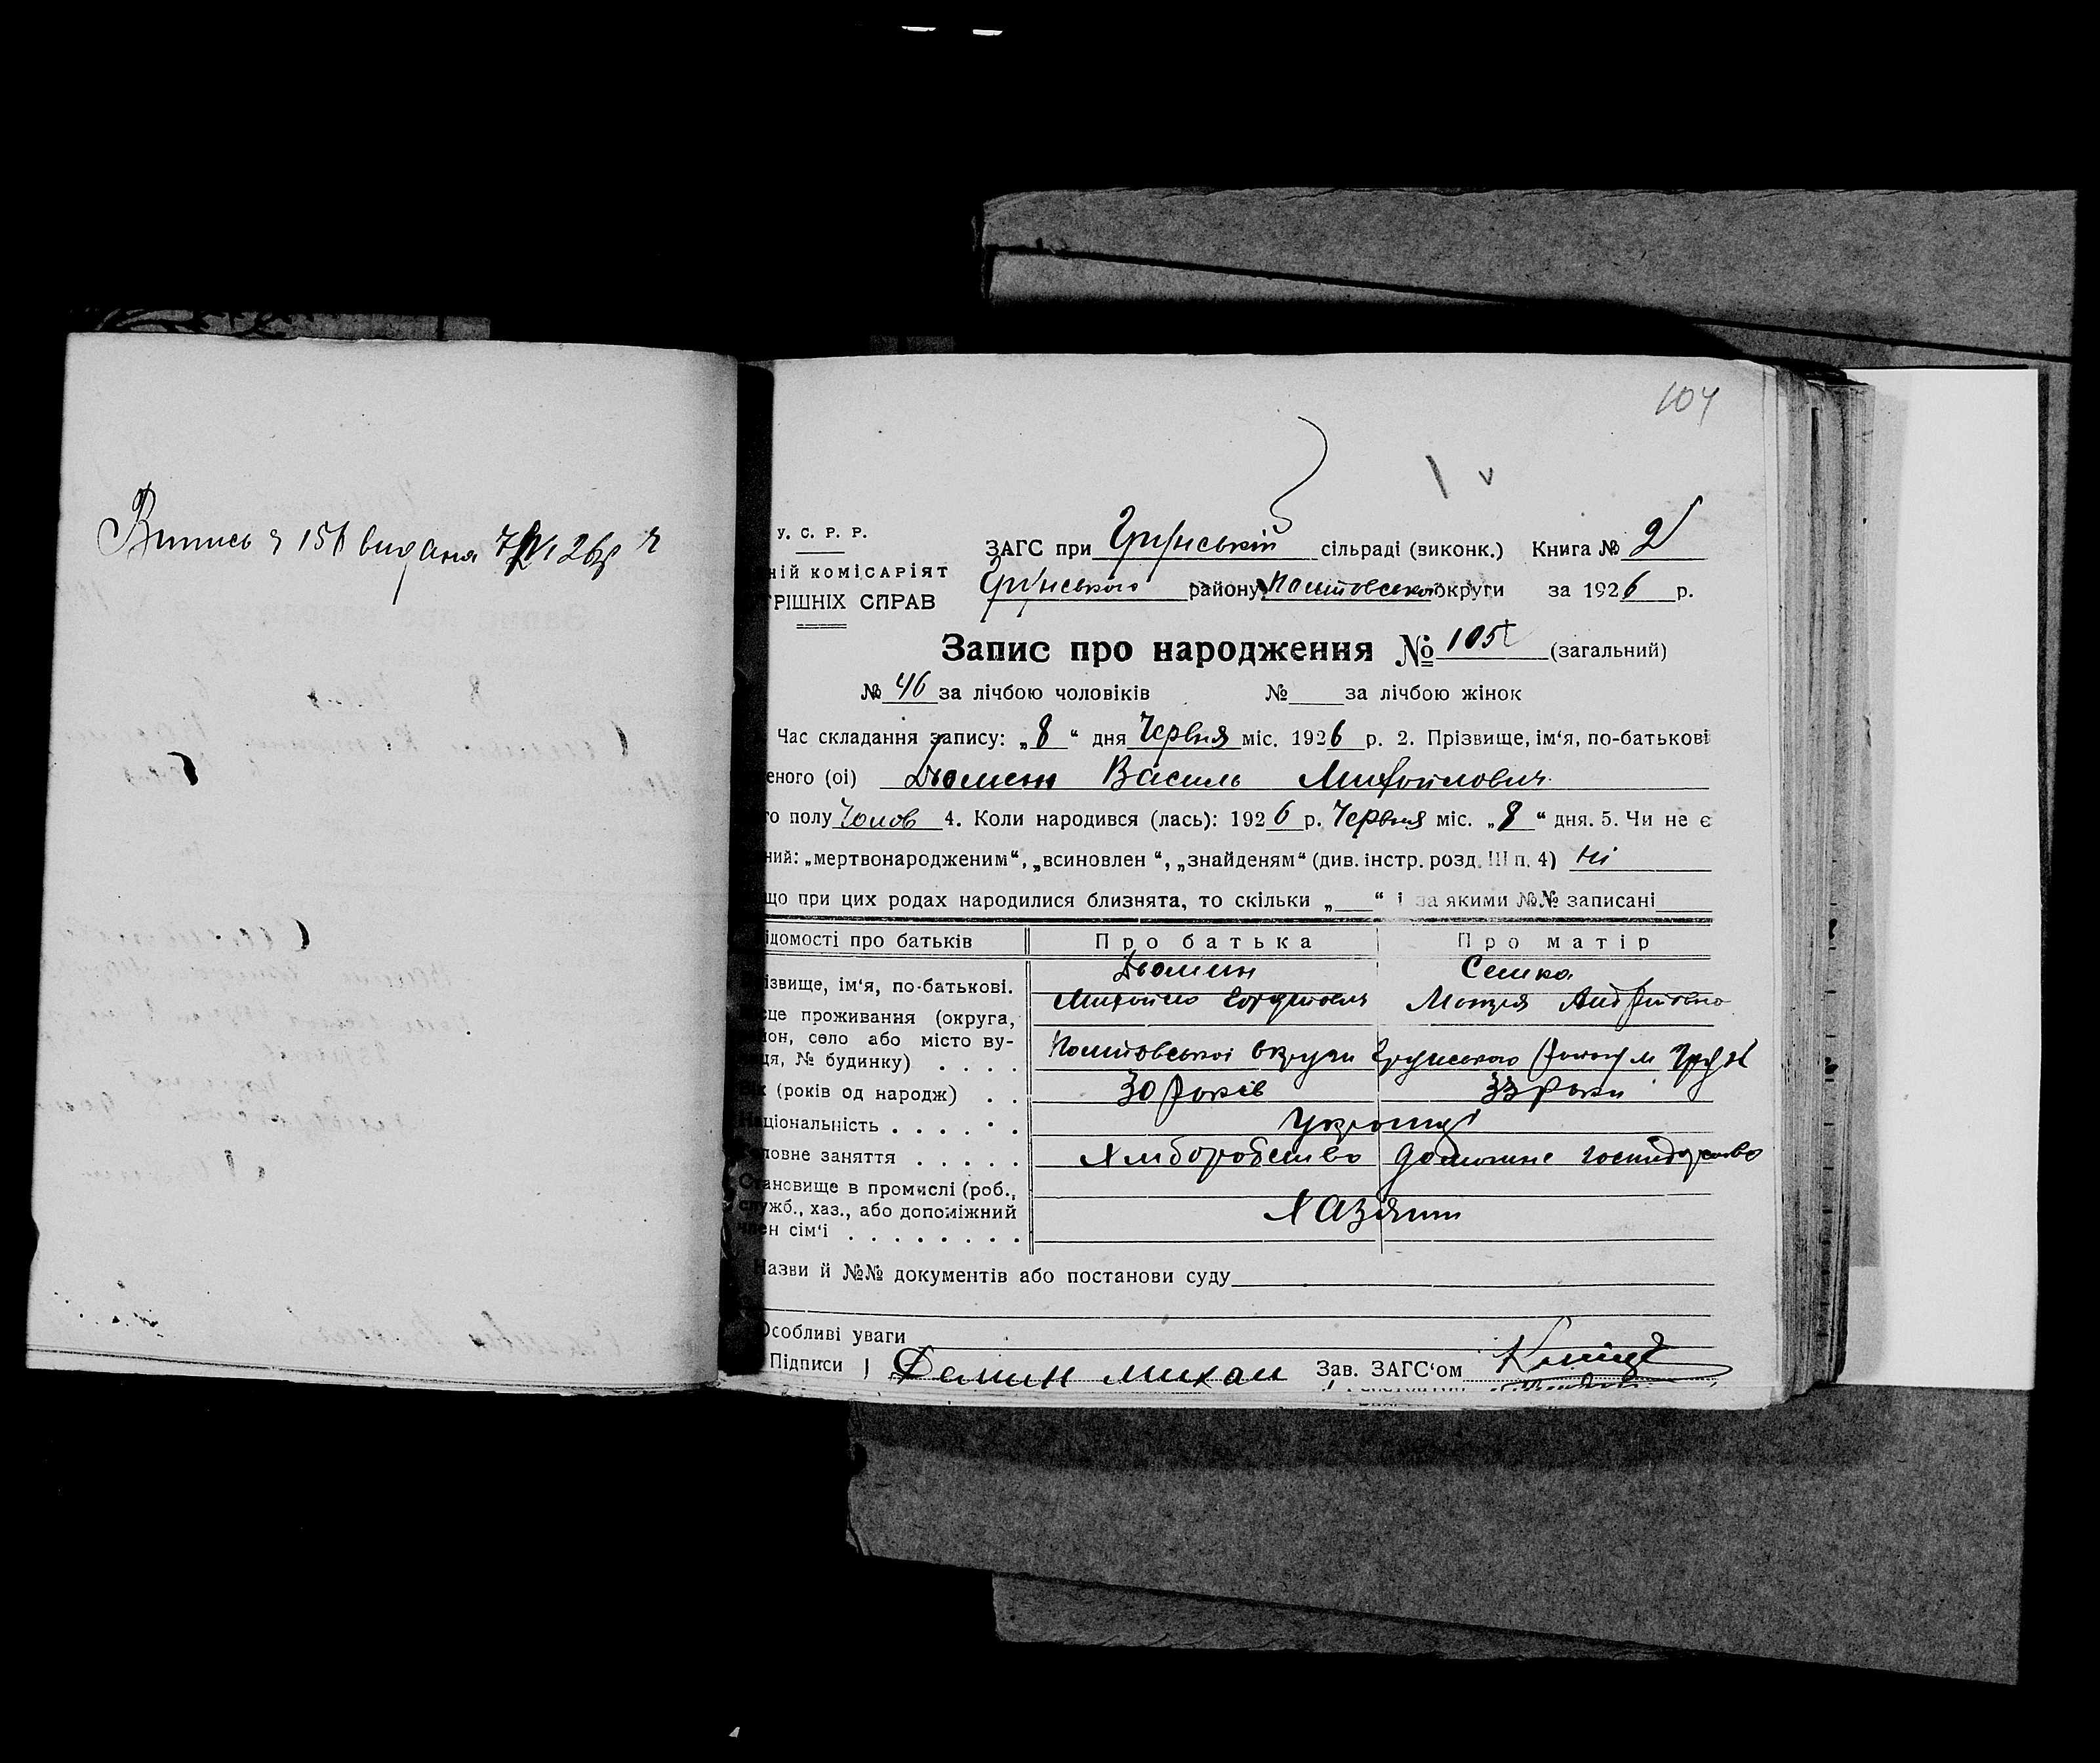 Випись з 151 видана 26 р
104
У. С. Р. Р.
ЗАГС при Грунській сільраді (виконк.) Книга № 2
ній комісаріят
Грунського району округи за 1926 р.
РІШНІХ СПРАВ
Запис про народження № 105 (загальний)
№ 46 за лічбою чоловіків № за лічбою жінок
Час складання запису: „8“ дня Червня міс. 1926 р. 2. Прізвище, ім‘я, по-батькові
еного (ої) Дьомин Василь Михойлович
го полу Чолов 4. Коли народився (лась): 1926 р. Червня міс. „8“ дня. 5. Чи не є
ний: „мертвонародженим“, „всиновлен “, „знайденям“ (див. інстр. розд. III п. 4) ні
що при цих родах народилися близнята, то скільки „ “ і за якими №№ записані
ідомості про батьків Про батька Про матір
Дьомин Семка
ізвище, ім‘я, по-батькові.
Михойло Мотря Андріївна
сце проживання (округа,
йон, село або місто ву-
ця, № будинку) . . . . округи Грунського району м Грунь
к (років од народж) . . 30 років 33 роки
аціональність . . . . . . Українці
ловне заняття . . . . . Хліборобство домашнє господарство
тановище в промислі (роб.,
служб., хаз., або допоміжний Хазяїни
член сім‘ї . . . . . . . .
Назви й №№ документів або постанови суду
Особливі уваги
Підписи Демин михаи Зав. ЗАГС‘ом